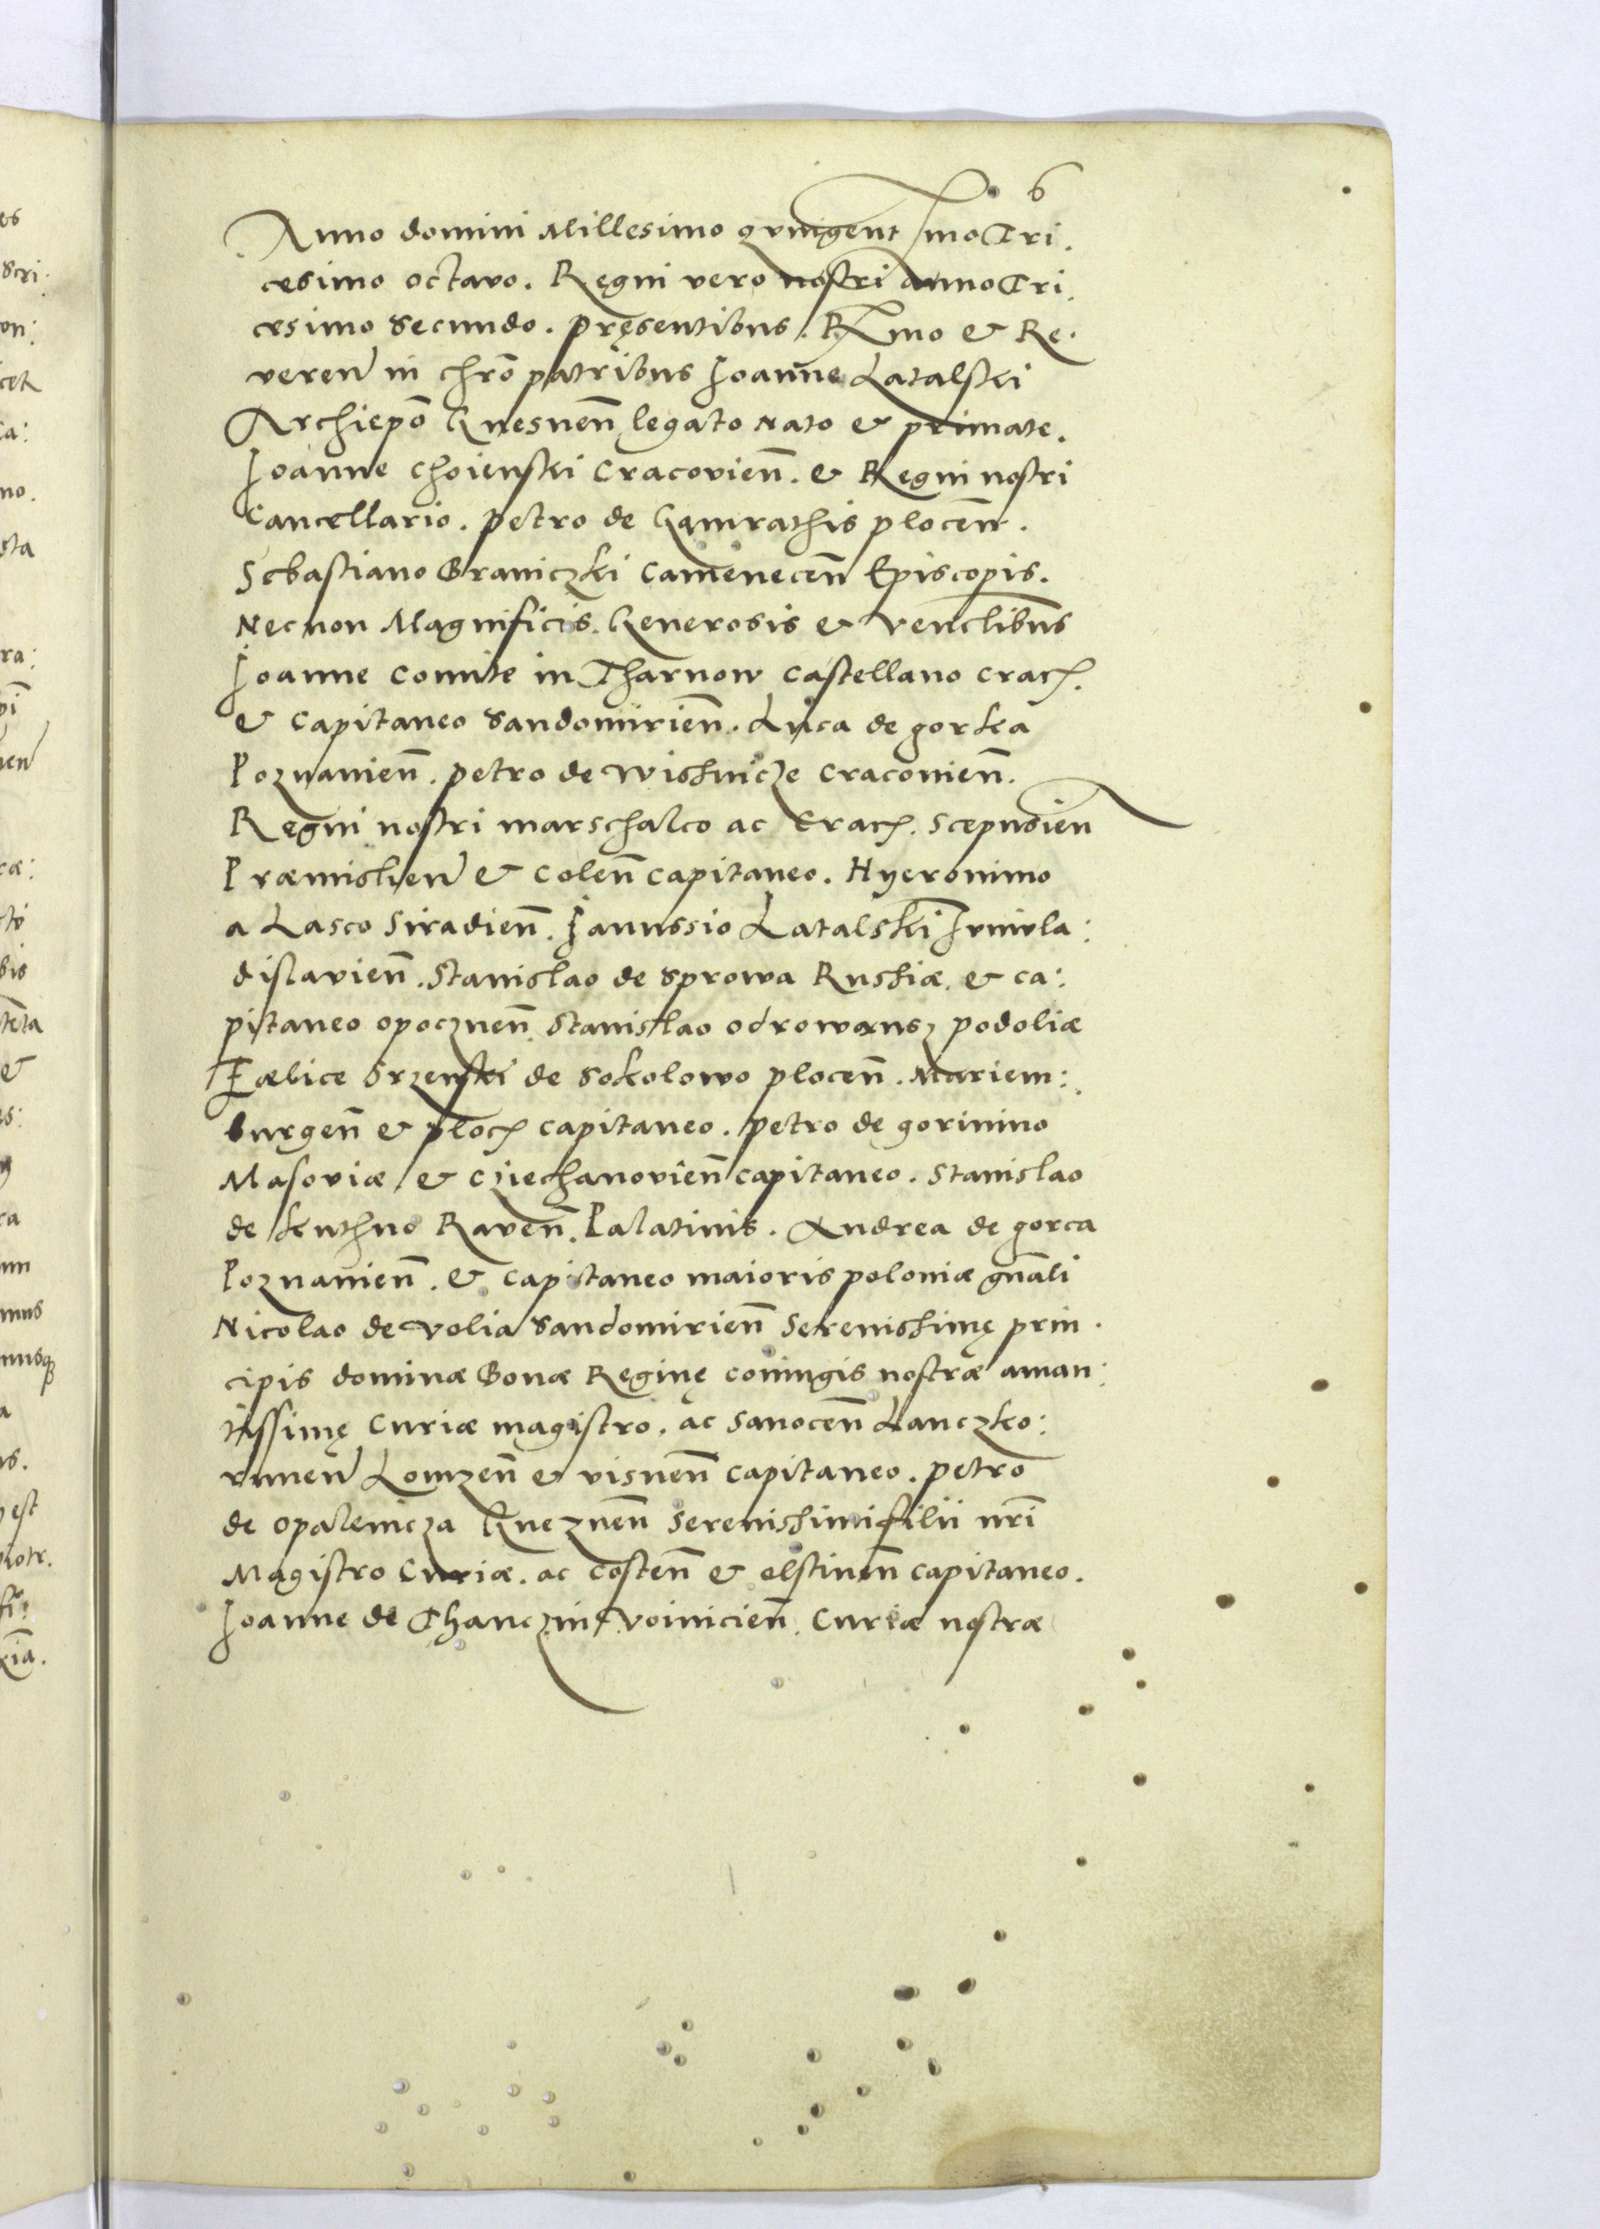 6
Anno domini Millesimo qvingent mo Tri.
cesimo octavo. Regni vero nostri anno Tri.
cesimo secundo. pręsentibus. Rmo & Re.
veren in chro patribus Ioanne Latalski
Archiepo Gnesnen legato nato & primate.
Ioanne Choienski Cracovien. & Regni nostri
Cancellario. petro de Gamrathis plocen.
Sebastiano Braniczki Camenecen Episcopis.
Necnon Magnificis. Generosis & venelibus
Ioanne Comite in Tharnow Castellano Crac.
& Capitaneo Sandomirien. Luca de gorka
Poznanien. petro de Wishnicze Cracovien.
Regni nostri marschalco ac Crac. Scepusien
Præmislien & Colen capitaneo. Hyeronimo
a Lasco Siradien. Ianussio Latalski Iuniula:
dislavien. Stanislao de Sprowa Rushiæ. & ca:
pitaneo opocznen. Stanislao odrowansz podoliæ
Fælice Srzenski de Sokolowo plocen. Mariem:
burgen & ploc capitaneo. petro de gorinino
Masoviæ & Cziechanovien capitaneo. Stanislao
de kuthno Raven. Palatinis. Andrea de gorca
Poznanien. & Capitaneo maioris poloniæ gnali
Nicolao de Volia Sandomirien Serenishimę prin.
cipis dominæ Bonæ Reginę coniugis nostræ aman:
tissimę Curiæ magistro. ac Sanocen Lanczko:
runen Lomzen & visnen capitaneo. petro
de opalenicza Gneznen Serenishimi filii nri
Magistro Curiæ. ac Costen & olstinen capitaneo.
Ioanne de Thanczin Voinicien. Curiæ nostræ